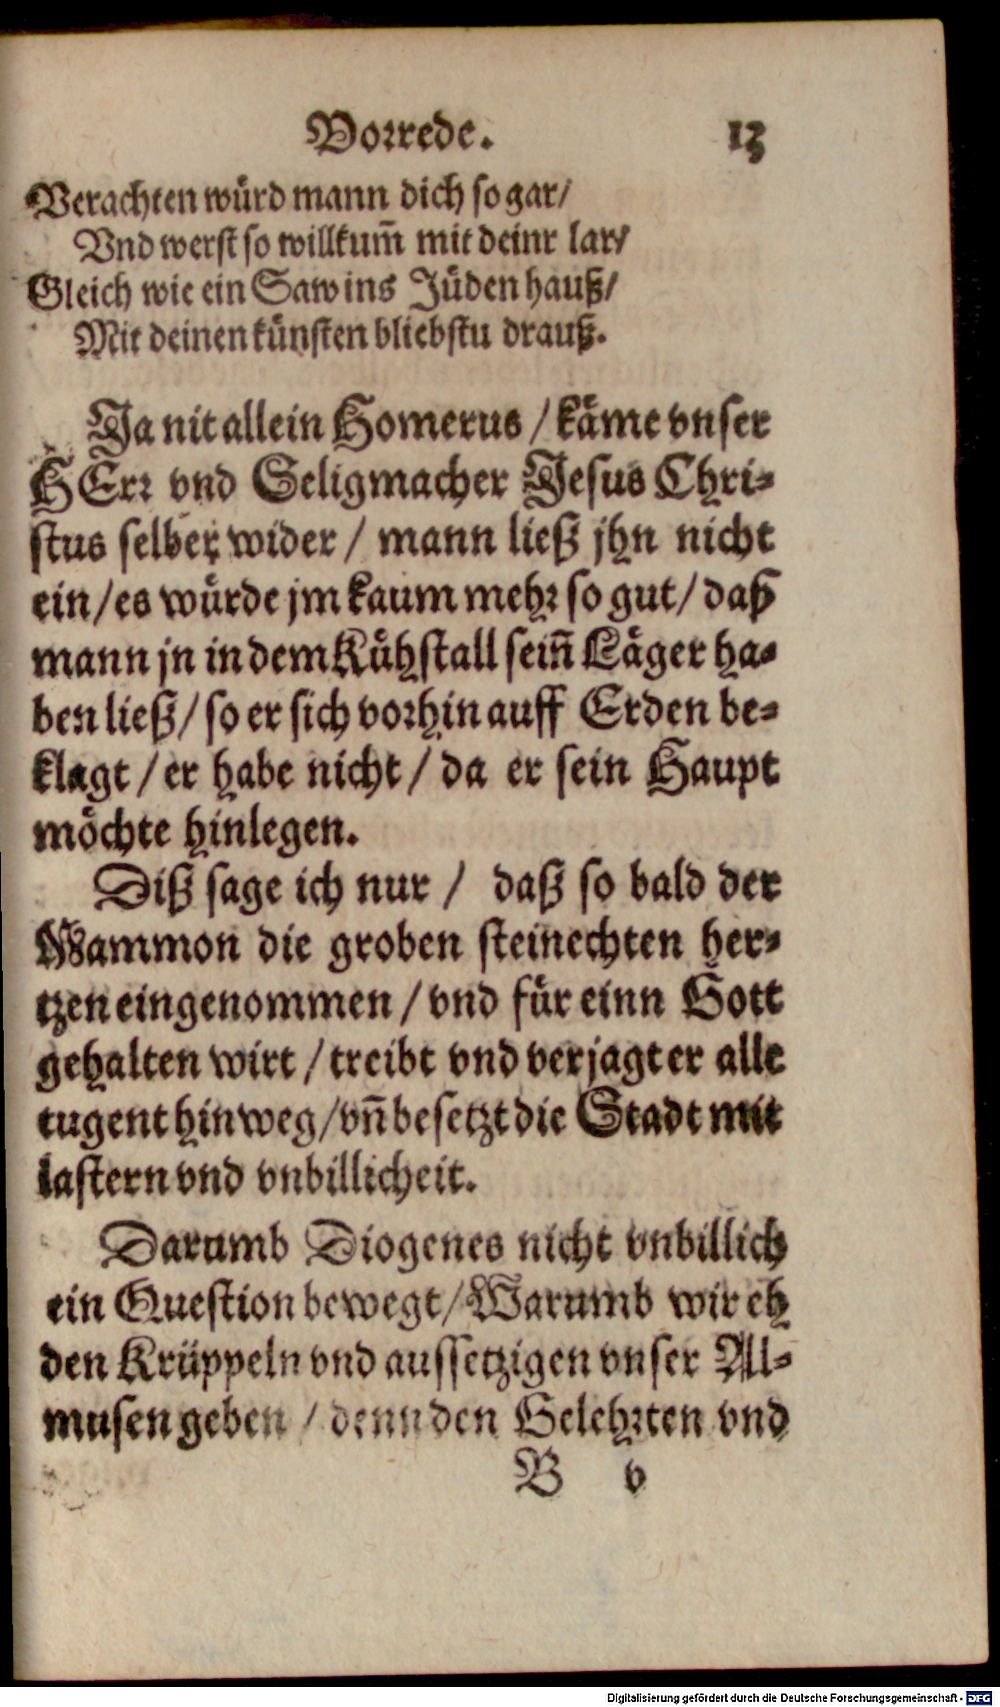 Vorrede. 13
Verachten würd mann dich so gar/
Vnd werst so willkum̃ mit deinr lar/
Gleich wie ein Saw ins Jüden hauß/
Mit deinen künsten bliebstu drauß.
Ja nit allein Homerus / käme vnser
HErr vnd Seligmacher Jesus Chri-
stus selber wider / mann ließ jhn nicht
ein / es würde jm kaum mehr so gut / daß
mann jn in dem Kühstall sein̄ Läger ha-
ben ließ / so er sich vorhin auff Erden be-
klagt / er habe nicht / da er sein Haupt
möchte hinlegen.
Diß sage ich nur / daß so bald der
Mammon die groben steinechten her-
tzen eingenommen / vnd für einn Gott
gehalten wirt / treibt vnd verjagt er alle
tugent hinweg / vn̄ besetzt die Stadt mit
lastern vnd vnbillicheit.
Darumb Diogenes nicht vnbillich
ein Question bewegt / Warumb wir eh
den Krüppeln vnd aussetzigen vnser Al-
musen geben / denn den Gelehrten vnd
B v
Digitalisierung gefördert durch die Deutsche Forschungsgemeinschaft - DFG